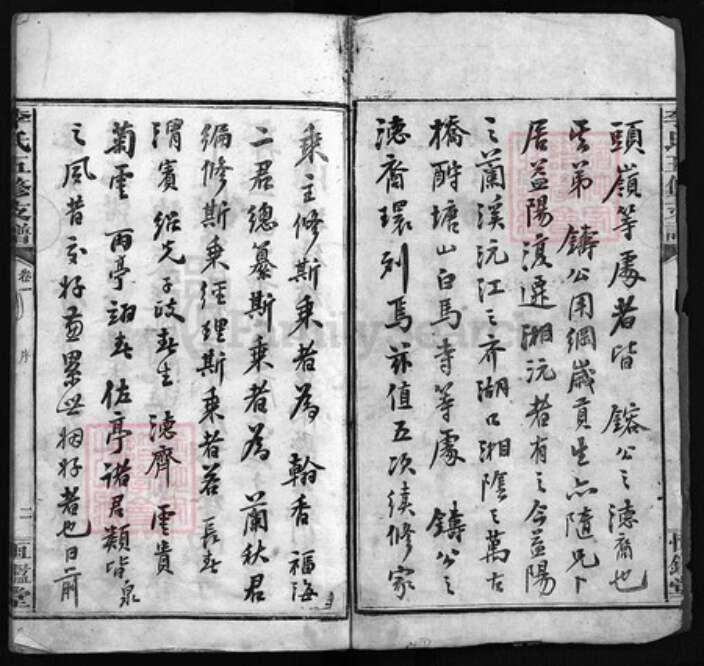 頭嶺等處者皆 鎔公之德裔也
其弟 鑄公用綱歲貢生亦隨兄卜
居益陽渡遷湘沅者有之今益陽
之蘭溪沅江之齐湖口湘陰之萬古
橋酹塘山白馬寺等處 鑄公之
德裔環列焉茲值五次續修家
乘主修斯乘者為 翰香 福海
二君總纂斯乘者為 蘭秋君
編修斯乘經理斯乘者若 長春
渭賓紹先子政春生 德齊 雲貴
菊雲 雨亭 翊春 佐亭諸君類皆泉
之風昔交好兼累世姻好者也日前
李氏五修支譜
卷一
序
二